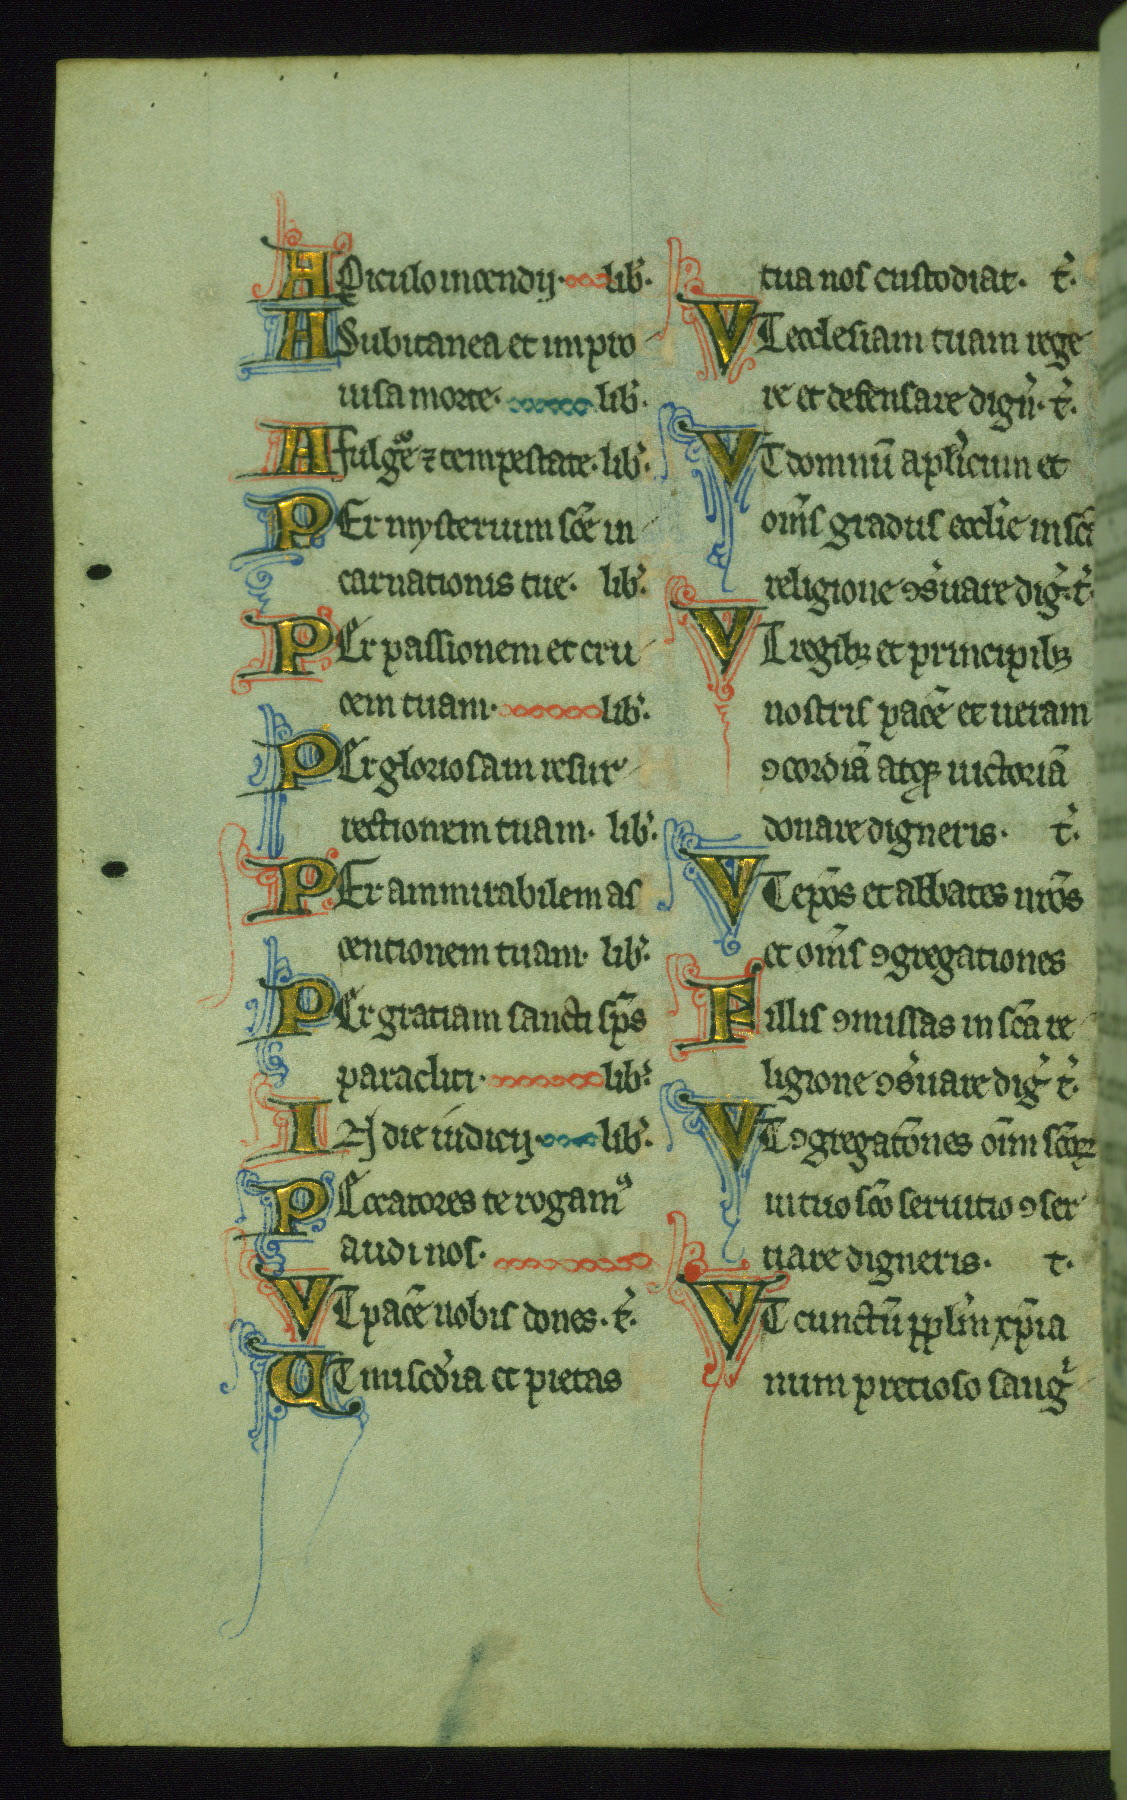 A Ꝑiculo incendij. lib̾.
A Subitanea et impro
uisa morte. lib̾.
A fulgᵒe ⁊ tempestate. lib̾.
PEr mysterium sc̄e in
carnationis tue. lib̾.
PEr passionem et cru
cem tuam. lib̾.
PEr gloriosam resur
rectionem tuam. lib̾.
PEr ammirabilem as
centionem tuam. lib̾.
PEr gratiam sancti sp̄s
paracliti. lib̾.
IN die iudicij. lib̾.
PEccatores te rogamꝰ
audi nos.
VT pacē nobis dones. t̾.
UT miscd̾ia et pietas
tua nos custodiat. t̾.
VT ecclesiam tuam rege
re et defensare dign̾. t̾.
VT domnū apl̾icum et
om̄s gradus eccl̾ie in sc̄a
religione ꝯs̾uare dig̾. t̾.
VT regibꝫ et principibꝫ
nostris pacē et ueram
ꝯcordiā atqꝫ uictoriā
donare digneris. t̾.
VT ep̄os et abbates nr̄os
et om̄s ꝯgregationes
F illis ꝯmissas in sc̄a re
ligione ꝯs̾uare dig̾ t̾.
VT ꝯgregatōnes om̄m sc̄oꝝ
in tuo sc̄o seruitio ꝯser
uare digneris. t.
VT cunctū ppl̾m xp̄ia
num precioso sang̾